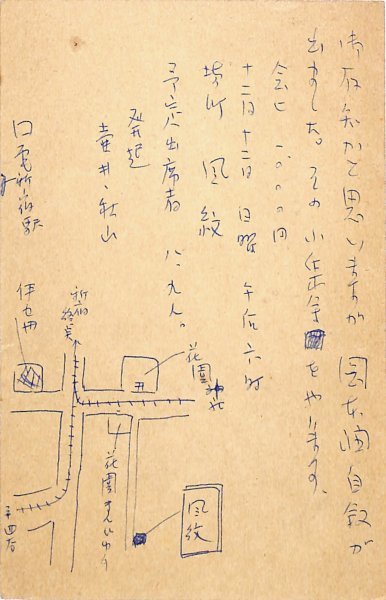 御存知かと思いますが 岡本潤自叙が
出ました。その小集会をやります。
会ヒ 一、〇〇〇円
十二月十二日 日曜 午后六時
場所 風紋
予定出席者 八、九人。
発起
壷井・秋山
国電新宿駅
伊セ丹
新宿
終点
花園神社
花園まんじゅう
風紋